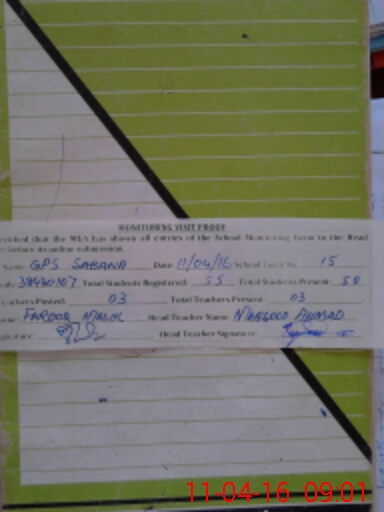 MONITORING VISIT PROOF
that the MEA has shown all entries of the School Monitoring form to the Head
before its online submission
Name GPS SABANA Date 11/04/16 School Form No. 15
Total Students Registered 55 Total Students Present 50
Teachers Posted: 03 Total Teachers Present 03
FAROOQ Head Teacher Name AHMAD
Head Teacher Signature
11-04-16 09:01